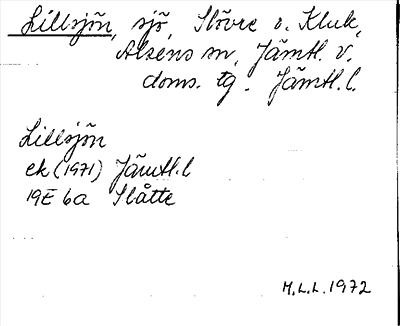 Lillsjön, sjö, Slövre o. Kluk,
Alsens sn, Jämtl. v.
doms. tg. Jämtl. l.
Lillsjön
ek (1971) Jämtl. l
19E 6a Slåtte
M.L.L. 1972